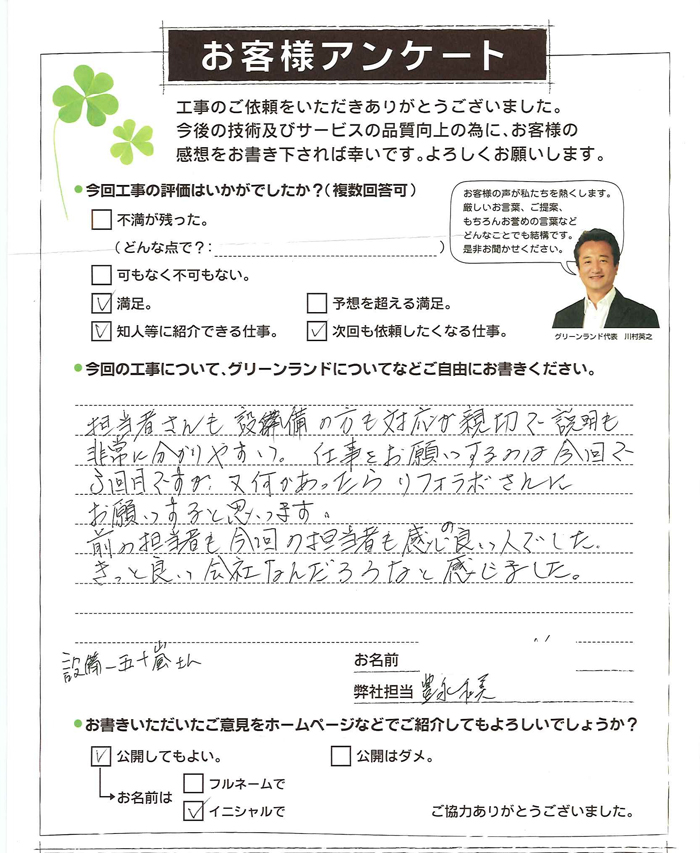 お客様アンケート
工事のご依頼をいただきありがとうございました。
今後の技術及びサービスの品質向上の為に、お客様の
感想をお書き下されば幸いです。よろしくお願いします。
今回工事の評価はいかがでしたか?(複数回答可)
不満が残った。
(どんな点で?: )
可もなく不可もない。
満足。
予想を超える満足。
知人等に紹介できる仕事。
次回も依頼したくなる仕事。
お客様の声が私たちを熱くします。
厳しいお言葉、ご提案、
もちろんお誉めの言葉など
どんなことでも結構です。
是非お聞かせください。
グリーンランド代表 川村英之
今回の工事について、グリーンランドについてなどご自由にお書きください。
担当者さんも設備の方も対応が親切で説明も
非常に分かりやすい。仕事をお願いするのは今回で
3回目ですが、又何かあったらリフォラボさんに
お願いすると思います。
前の担当者も今回の担当者も感じの良い人でした。
きっと良い会社なんだろうなと感じました。
設備―五十嵐さん
お名前
弊社担当 豊永
お書きいただいたご意見をホームページなどでご紹介してもよろしいでしょうか?
公開してもよい。
公開はダメ。
お名前は
フルネームで
イニシャルで
ご協力ありがとうございました。